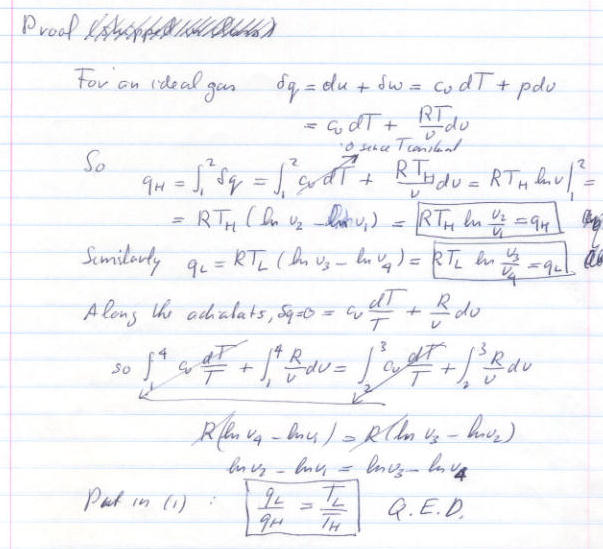 Proof
For an ideal gas δq = du + δw = cv dT + pdv
= cv dT + RT/v dv
0 since T constant
So qH = ∫₁² δq = ∫₁² cv dT + RTH/v dv = RTH ln v|₁² =
= RTH (ln v2 - ln v1) = RTH ln v2/v1 = qH
Similarly qL = RTL (ln v3 - ln v4) = RTL ln v3/v4 = qL
Along the adiabats, δq=0 = cv dT/T + R/v dv
so ∫₁⁴ cv dT/T + ∫₁⁴ R/v dv = ∫₂³ cv dT/T + ∫₂³ R/v dv
R(ln v4 - ln v1) = R(ln v3 - ln v2)
ln v2 - ln v1 = ln v3 - ln v4
Put in (1) : qL/qH = TL/TH Q.E.D.